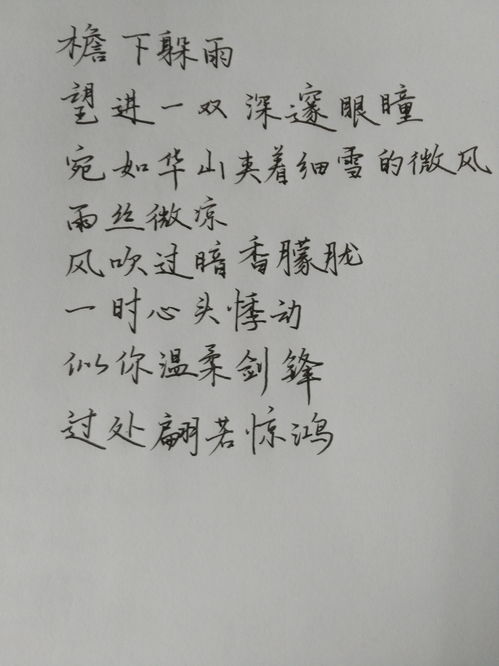 檐下躲雨
望进一双深邃眼瞳
宛如华山夹着细雪的微风
雨丝微凉
风吹过暗香朦胧
一时心头悸动
似你温柔剑锋
过处翩若惊鸿